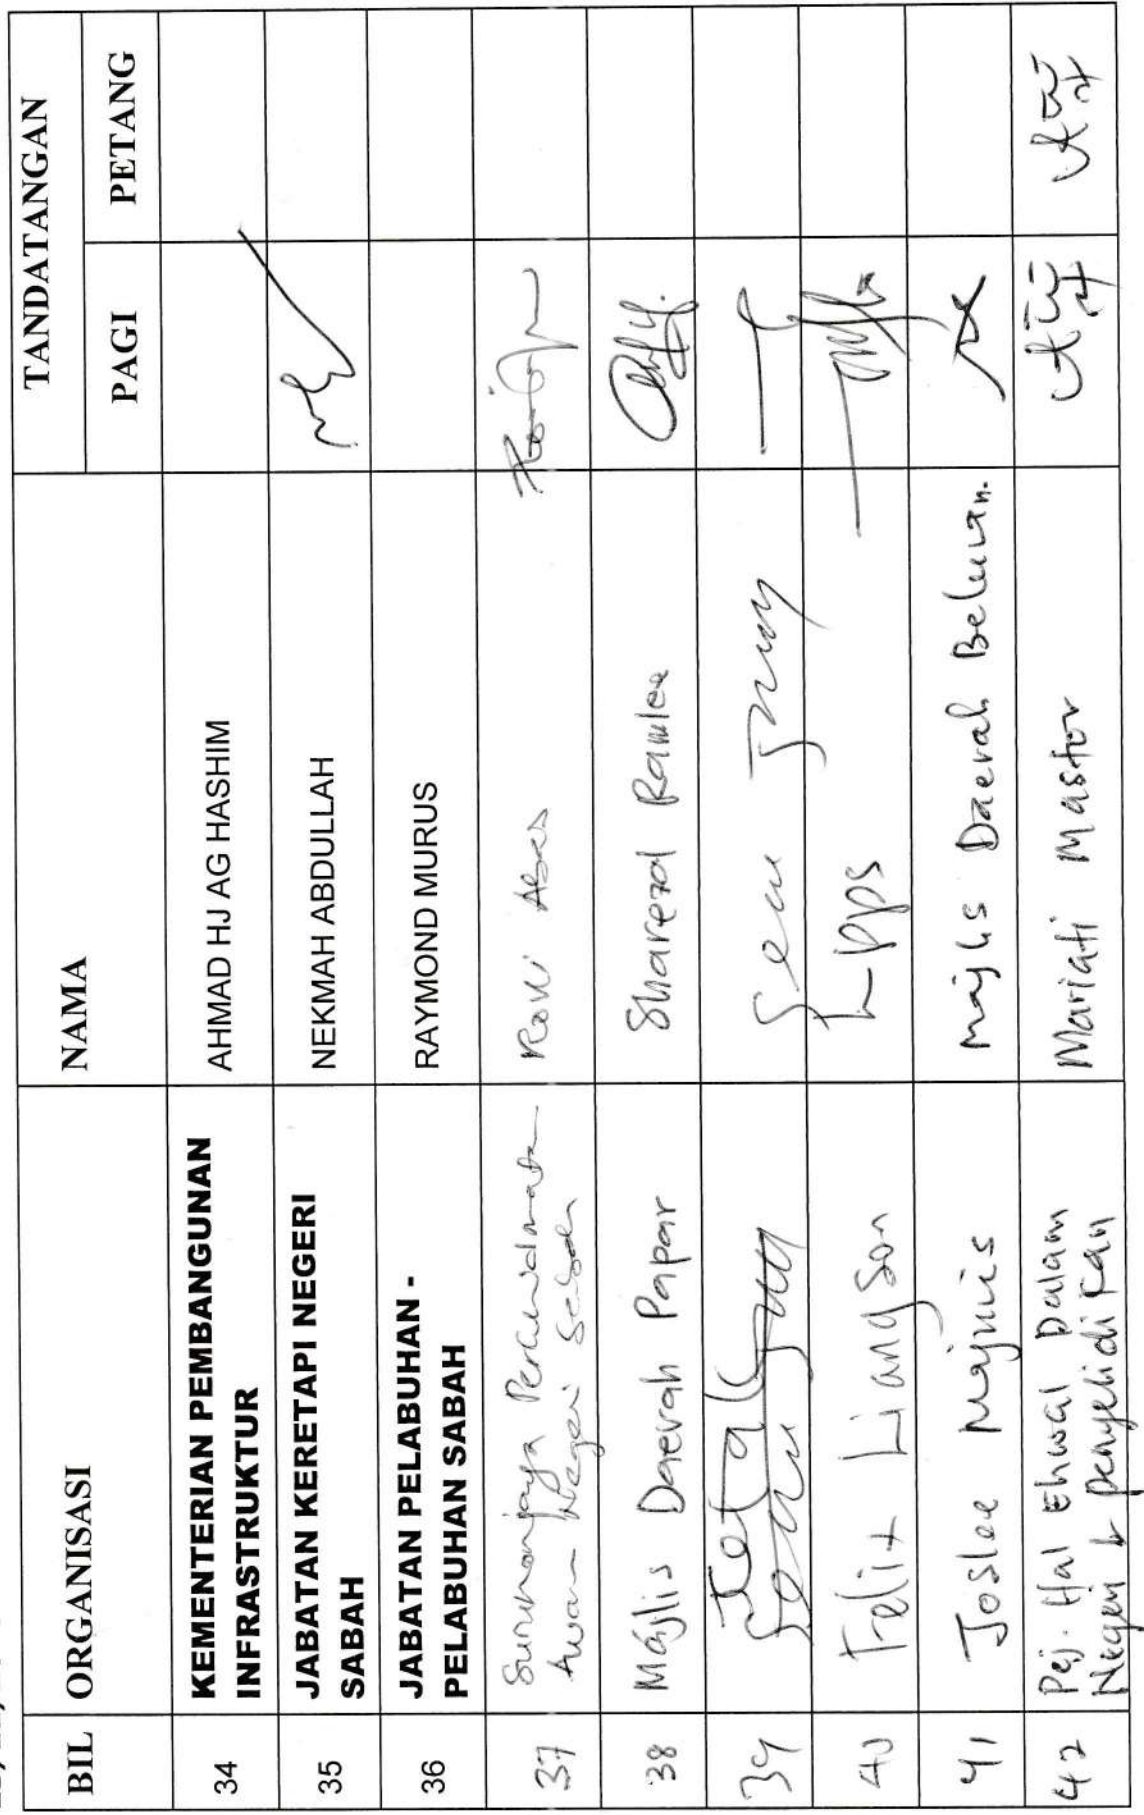 TANDATANGAN
BIL ORGANISASI NAMA PAGI PETANG
34 KEMENTERIAN PEMBANGUNAN
INFRASTRUKTUR
AHMAD HJ AG HASHIM
35 JABATAN KERETAPI NEGERI
SABAH
NEKMAH ABDULLAH
36 JABATAN PELABUHAN -
PELABUHAN SABAH
RAYMOND MURUS
37 Suruhanjaya Perkhidmatan
Awam Negeri Sabah
38 Majlis Daerah Papar
Sharezal Ramlee
39
40 Felix Liangson
LPPS
41 Joslee Majinis
Majlis Daerah Beluran.
42 Pej. Hal Ehwal Dalam
Negeri & Penyelidikan
Mariati Mastor